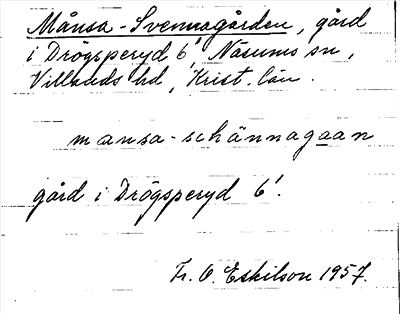 Månsa-Svennagården, gård
i Drögsperyd 6¹ Näsums sn,
Villands hd, Krist. län.
mansa-schännagaan
gård i Drögsperyd 6¹.
Fr. O. Eskilson 1957.